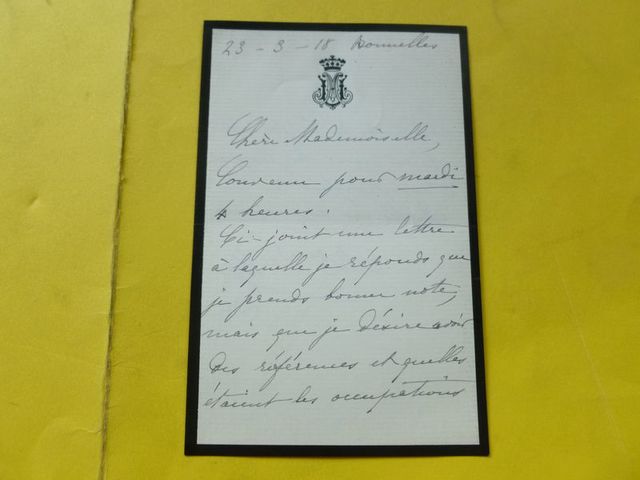 23 - 3 - 18 Bonnelles
Chère Mademoiselle,
Convenu pour mardi
4 heures.
Ci-joint une lettre
à laquelle je réponds que
je prends bonne note,
mais que je désire avoir
des références et quelles
étaient les occupations